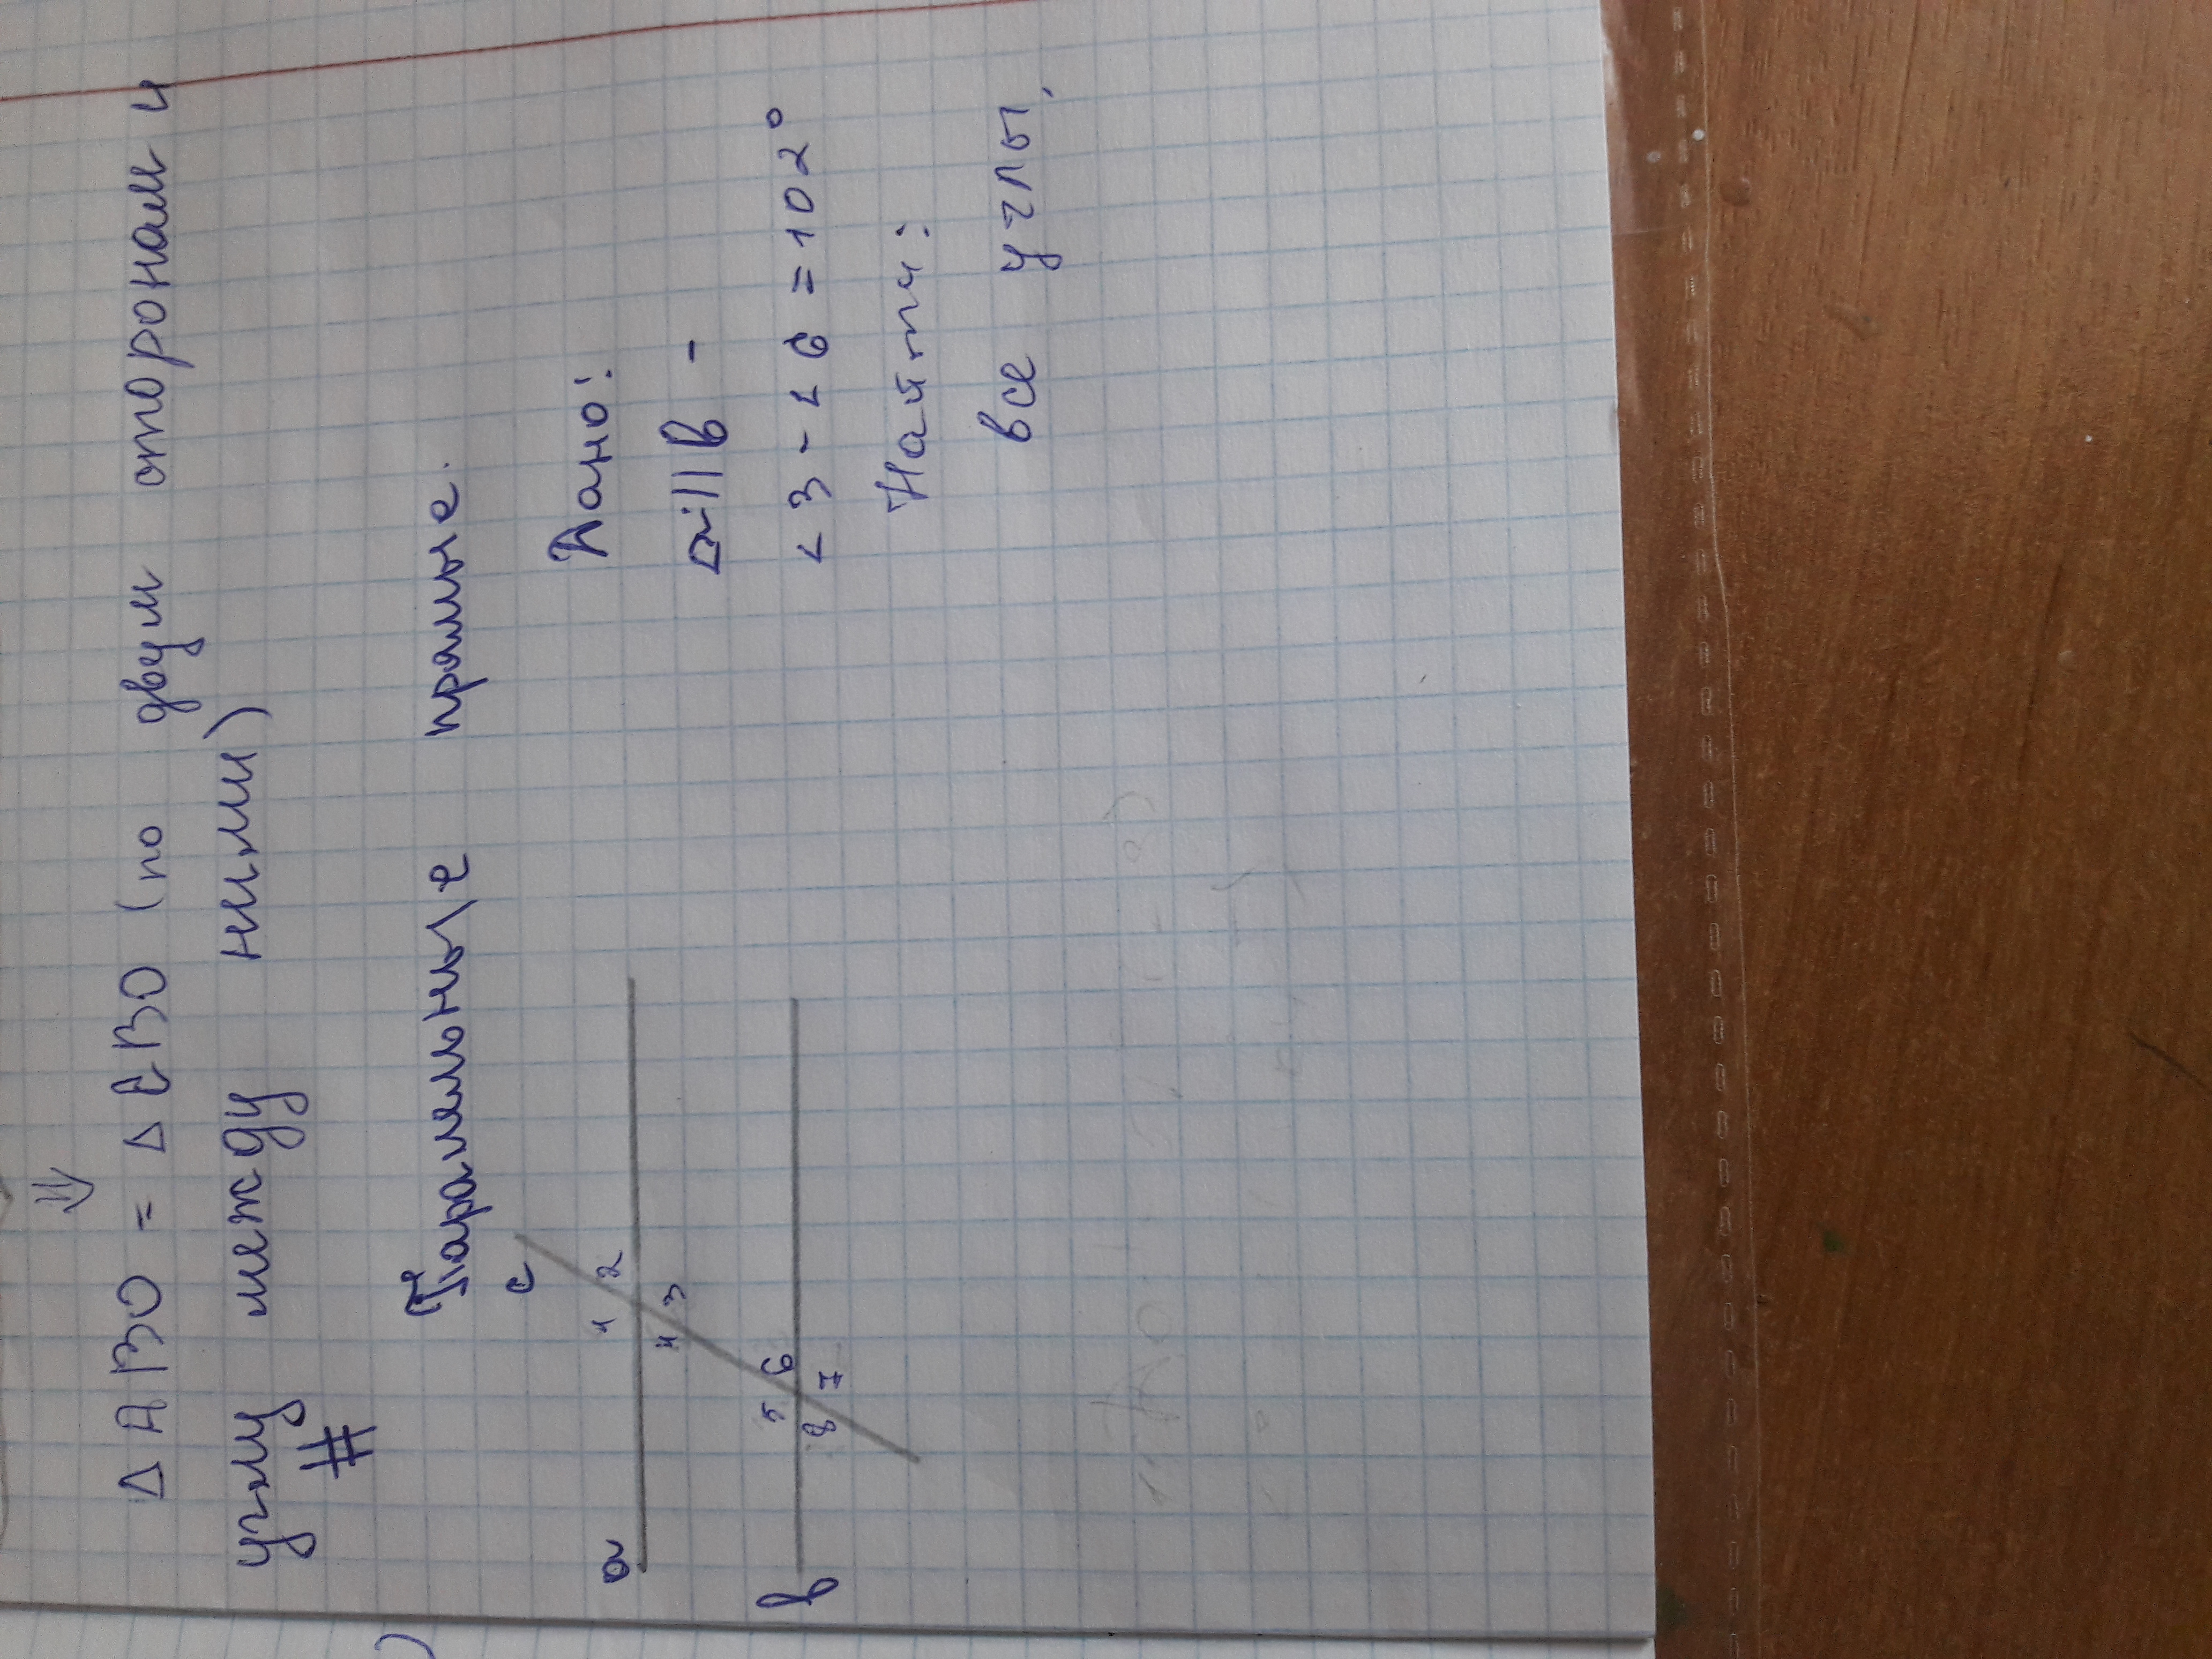 ⇓
Δ АВО = Δ СВО (по двум сторонам и
углу между ними)
#
Паралельные прямые.
c
1 2
a
4 3
5 6
в
8 7
Дано:
a || в -
∠3 - ∠6 = 102°
Найти:
все углы.